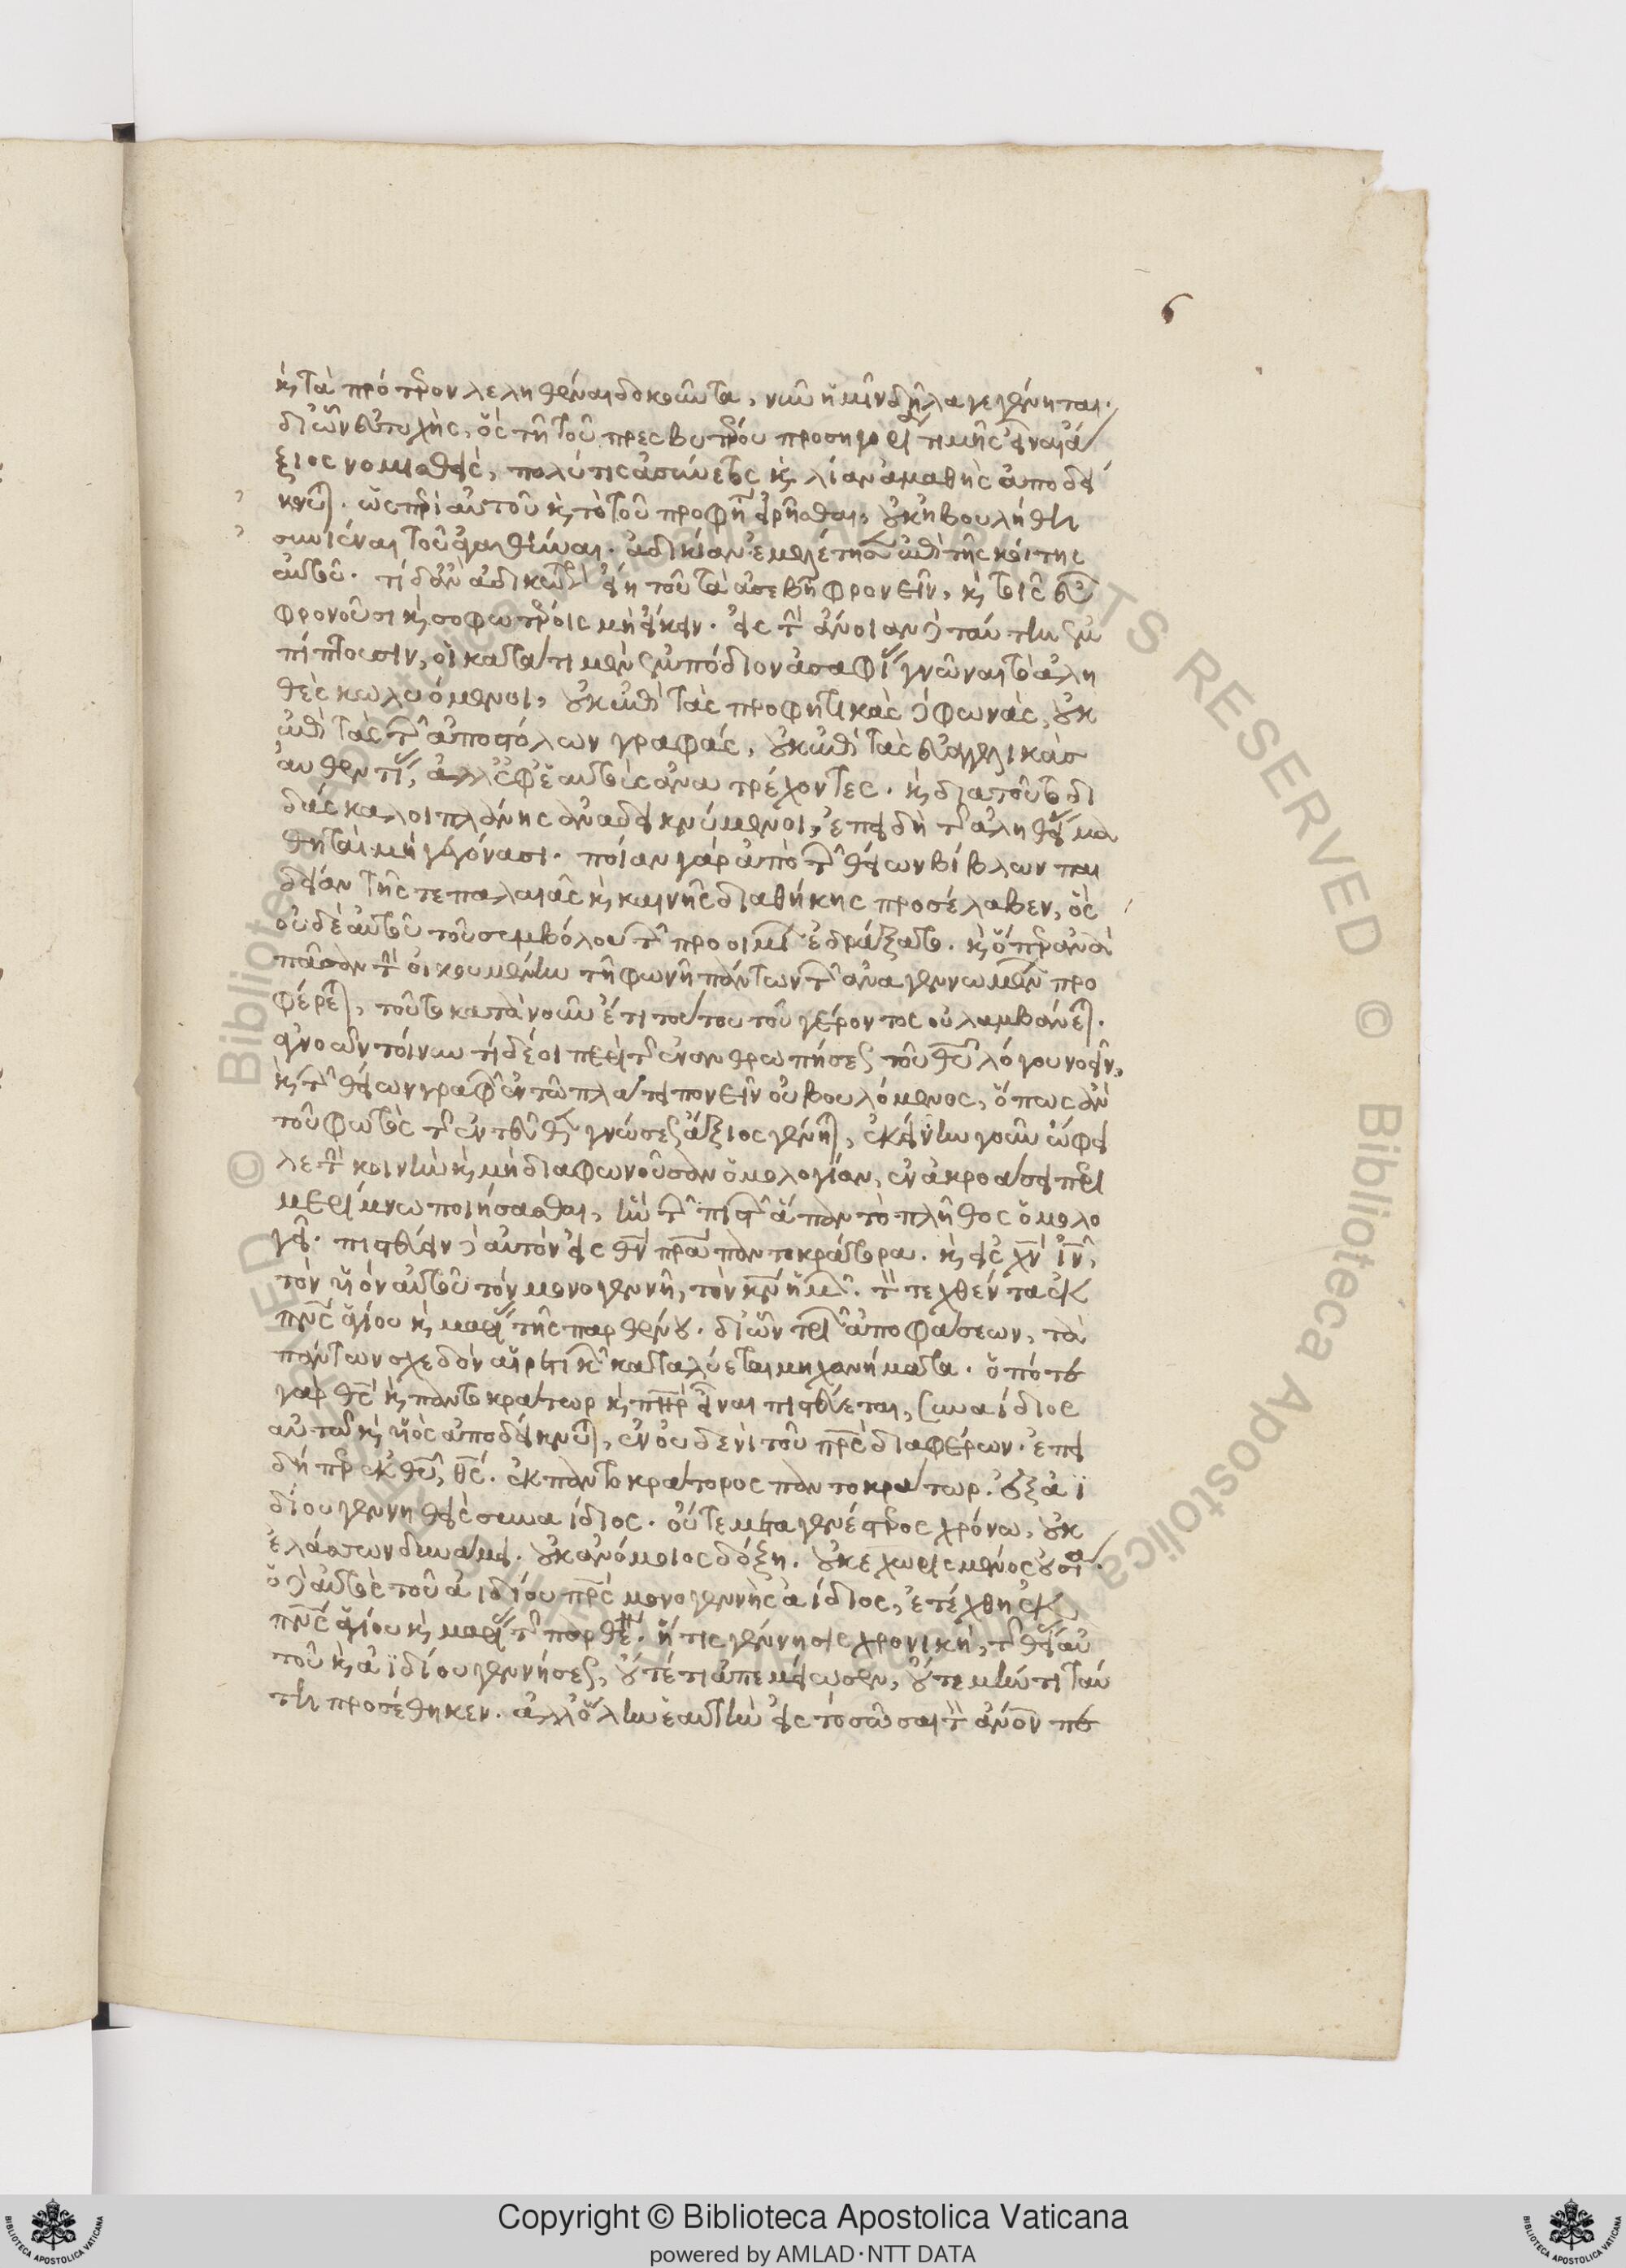 6
κ τὰ πρότερον λεληθέναι δοκοῦντα, νῦν ἡμῖν δῆλα γεγένηται.
δι' ὧν εὐτυχὴς, ὃς τῇ τοῦ πρεσβυτέρου προσηγορίᾳ τιμῆς εἶναι ἄ
ξιος νομισθεὶς, πολύ τις ἀσύνετος κ λίαν ἀμαθὴς ἀποδεί
κνυται. ὥστε περὶ αὐτοῦ κ τὸ τοῦ προφήτου εἰρῆσθαι, οὐκ ἠβουλήθη
συνιέναι τοῦ ἀγαθῦναι. ἀδικίαν ἐμελέτησεν ἐπὶ τῆς κοίτης
αὐτοῦ. τί δ' ἂν ἀδικώτερον εἴη τοῦ τὰ ἀσεβῆ φρονεῖν, κ τοῖς εὖ
φρονοῦσι κ σοφωτέροις μὴ εἴκειν. εἰς τὴν ἄνοιαν δὲ ταύτην ἐμ
πίπτουσιν, οἳ κατά τι μὲν ἐμπόδιον ἀσαφείας γνῶναι τὸ ἀλη
θὲς κωλυόμενοι, οὐκ ἐπὶ τὰς προφητικὰς δὲ φωνὰς, οὐκ
ἐπὶ τὰς τῶν ἀποστόλων γραφάς, οὐκ ἐπὶ τὰς εὐαγγελικὰς
αὐθεντίας, ἀλλ' ἐφ' ἑαυτοὺς ἀνατρέχοντες. κ διὰ τοῦτο δι
δάσκαλοι πλάνης ἀναδεικνύμενοι, ἐπειδὴ τῆς ἀληθείας μα
θηταὶ μὴ γεγόνασι. ποίαν γὰρ ἀπὸ τῶν θείων βίβλων παι
δείαν τῆς τε παλαιᾶς κ καινῆς διαθήκης προσέλαβεν, ὃς
οὐδὲ αὐτοῦ τοῦ συμβόλου τῶν προοιμίων ἐδράξατο. κ ὅπερ ἀνὰ
πᾶσαν τὴν οἰκουμένην τῇ φωνῇ πάντων τῶν ἀναγεννωμένων προ
φέρεται, τοῦτο κατὰ νοῦν ἔτι τούτου τοῦ γέροντος οὐ λαμβάνεται.
ἀγνοῶν τοίνυν τί δέοι περὶ τῆς ἐνανθρωπήσεως τοῦ θυ λόγου νοεῖν,
κ τῶν θείων γραφῶν ἐν τῷ πλάτει πονεῖν οὐ βουλόμενος, ὅπως ἂν
τοῦ φωτὸς τῆς ἐντεῦθεν γνώσεως ἄξιος γένηται, ἐκείνην γοῦν ὤφει
λε τὴν κοινὴν κ μὴ διαφωνοῦσαν ὁμολογίαν, ἐν ἀκροάσει περι
μερίμνῳ ποιήσασθαι, ἣν τῶν πιστῶν ἅπαν τὸ πλῆθος ὁμολο
γεῖ. πιστεύειν δὲ αὐτὸν εἰς θν πρα παντοκράτορα. κ εἰς χν ιν,
τὸν υἱὸν αὐτοῦ τὸν μονογενῆ, τὸν κν ἡμῶν. τὸν τεχθέντα ἐκ
πνς ἁγίου κ μαρίας τῆς παρθένου. δι' ὧν τριῶν ἀποφάσεων, τὰ
πάντων σχεδὸν αἱρετικῶν καταλύεται μηχανήματα. ὁπότε
γὰρ θς κ παντοκράτωρ κ πηρ εἶναι πιστεύεται, συναίδιος
αὐτῷ κ υἱὸς ἀποδείκνυται, ἐν οὐδενὶ τοῦ πρς διαφέρων. ἐπει
δήπερ ἐκ θυ, θς. ἐκ παντοκράτορος παντοκράτωρ. ἐξ ἀϊ
δίου γεννηθεὶς συναίδιος. οὔτε μεταγενέστερος χρόνῳ, οὐκ
ἐλάττων δυνάμει. οὐκ ἀνόμοιος δόξῃ. οὐ κεχωρισμένος οὐσίᾳ.
ὁ δὲ αὐτὸς τοῦ ἀϊδίου πρς μονογενὴς ἀΐδιος, ἐτέχθη ἐκ
πνς ἁγίου κ μαρίας τῆς παρθένου. ἥ τις γέννησις χρονική, τῆς θείας αὐ
τοῦ κ ἀϊδίου γεννήσεως, οὔτέ τι ἀπεμείωσεν, οὔτε μήν τι ταύ
τῃ προσέθηκεν. ἀλλ' ὅλην ἑαυτὴν εἰς τὸ σῶσαι τὸν ἄνον πε
Copyright © Biblioteca Apostolica Vaticana
powered by AMLAD·NTT DATA